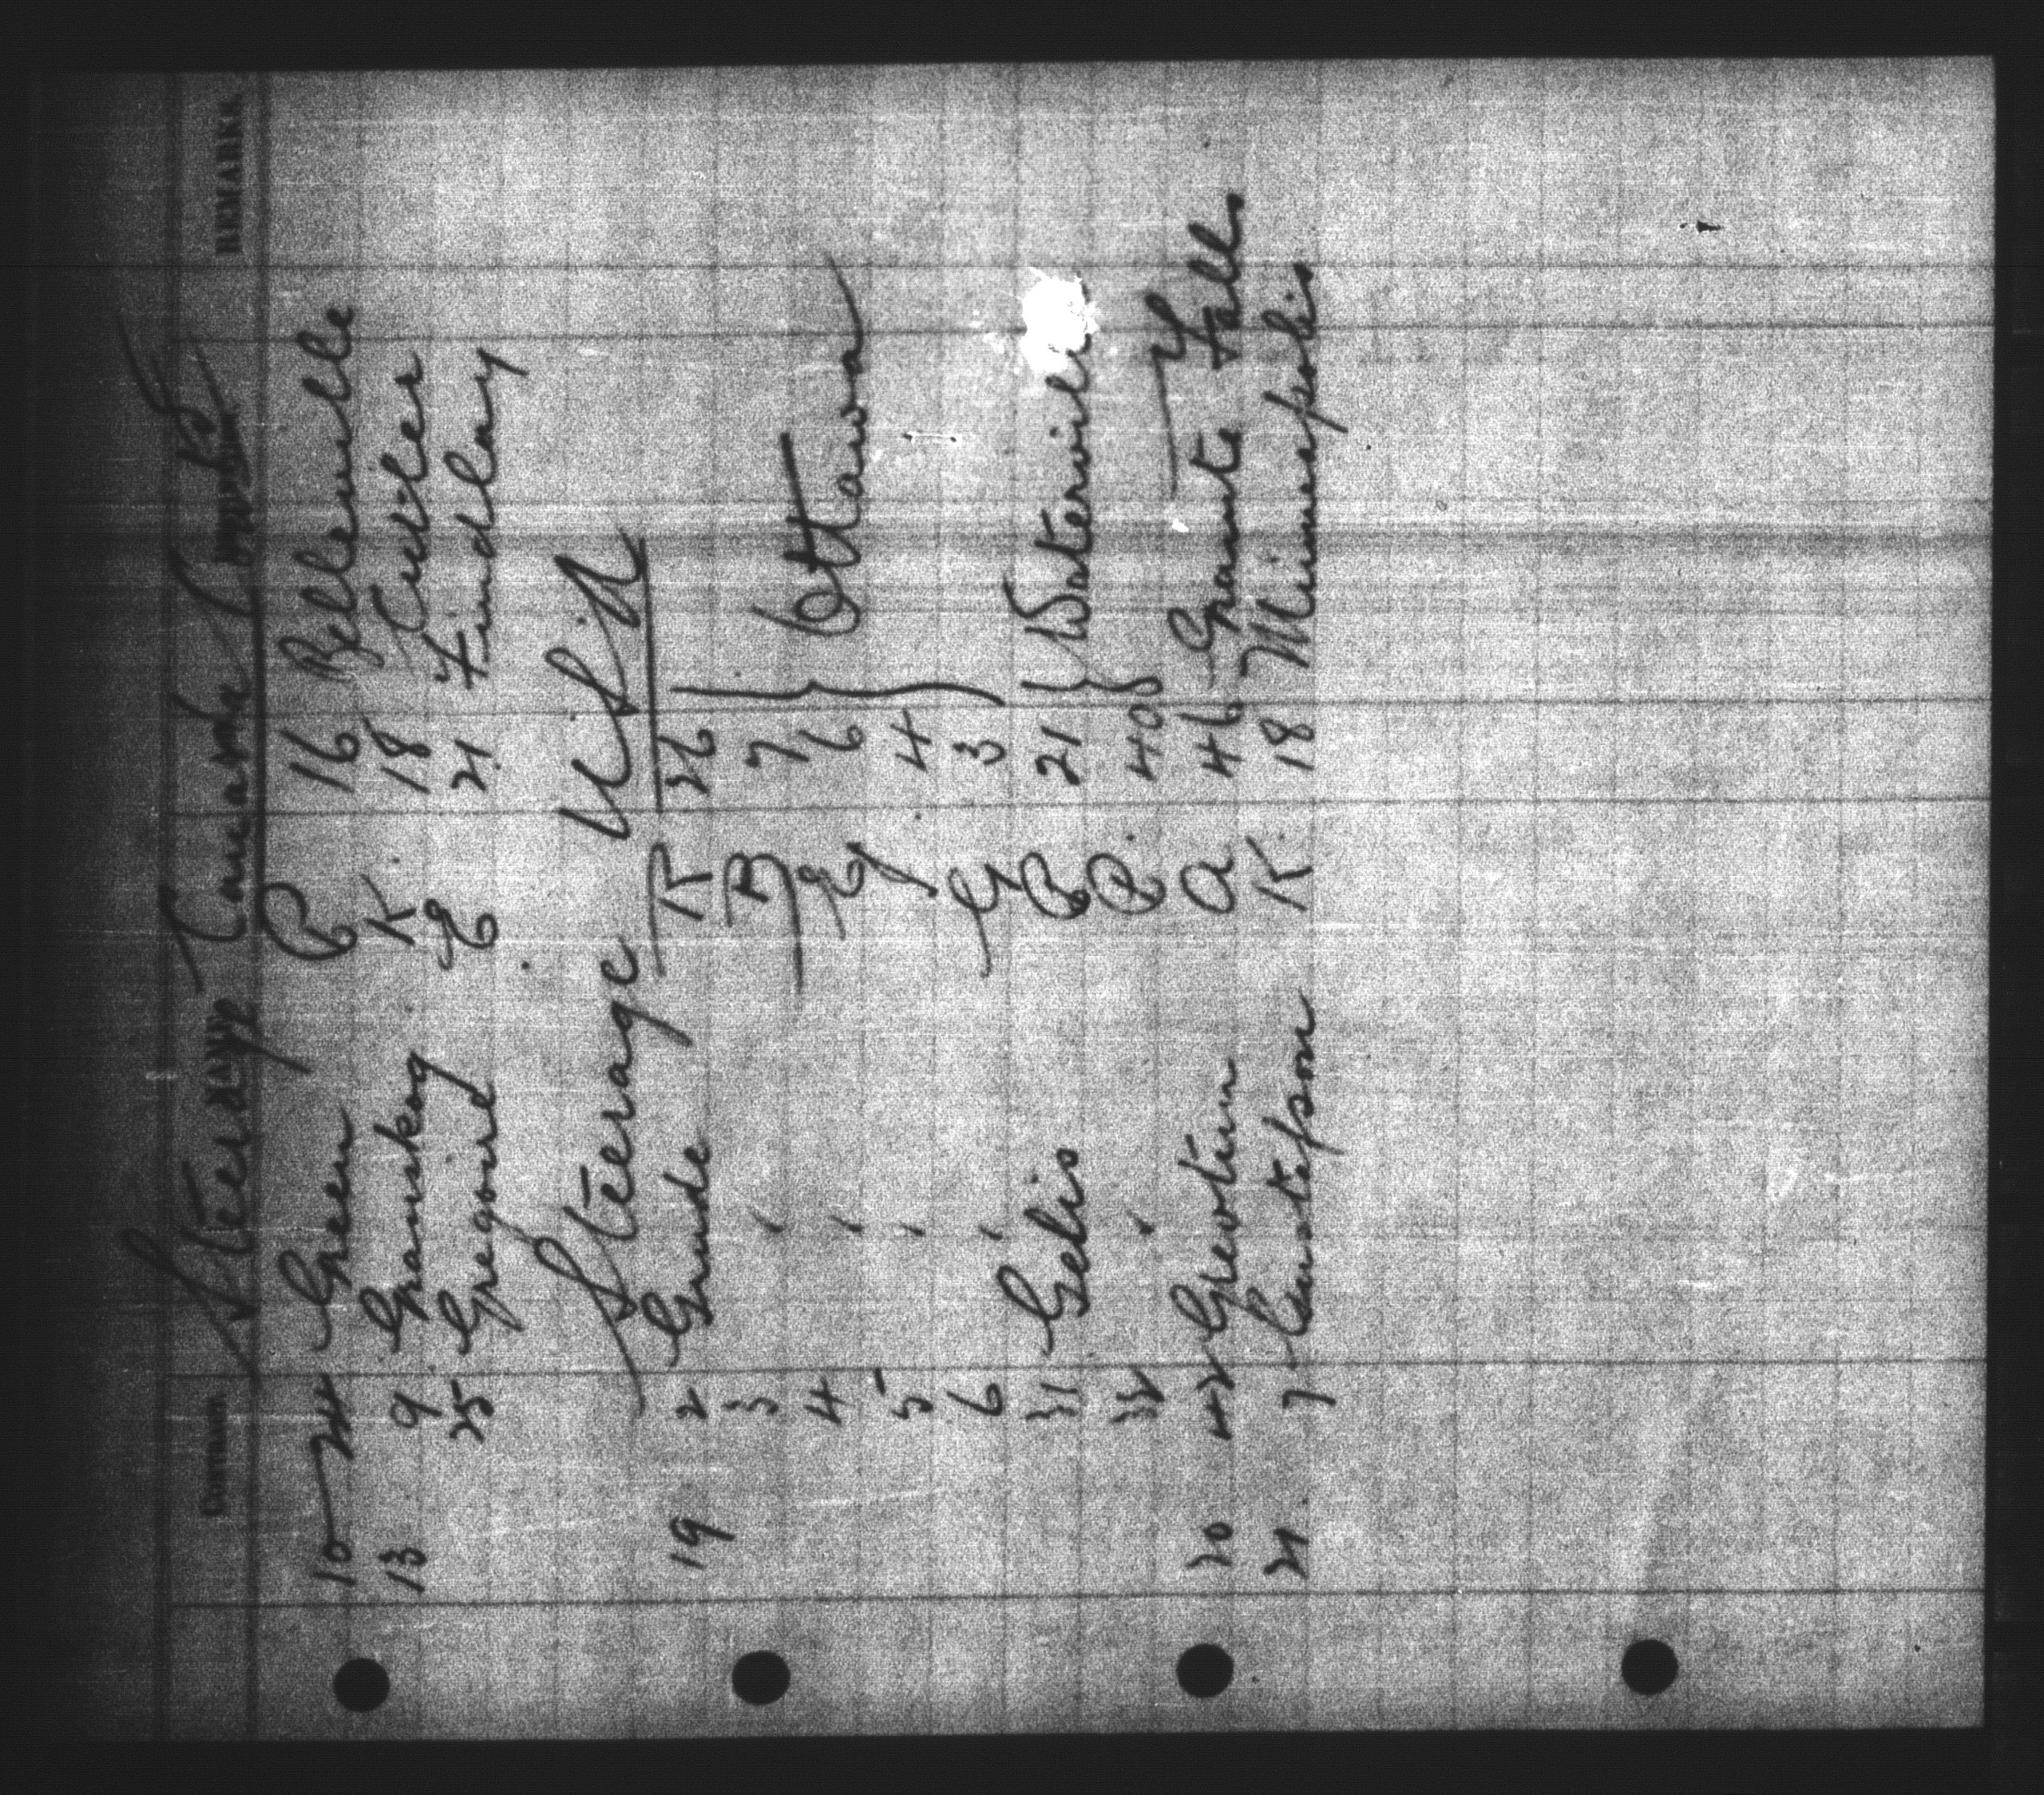 CONTRACT NAME REMARKS.
Steerage Canada Contd
10 24 Green P 16 Belleville
13 9 Granskog K 18 Cutler
25 Gregoird E 21 Findlay
Steerage USA
19 2 Grude K 26
3 " B 7
4 " E 6 Ottawa
5 " J 4
6 " G 3
31 Gelis B 21 Waterville
32 " R 40
20 42 Greotun A 46 Granite Falls
21 7 Gustafson K 18 Minneapolis